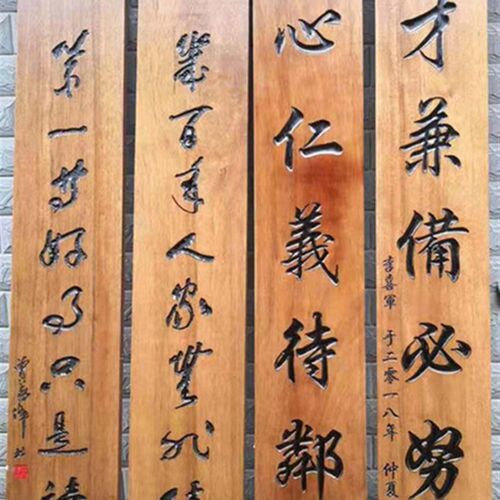 才兼備必努
李喜軍 于二零一八年 仲夏
心仁義待鄰
幾百年人家無非積
第一等好事只是讀